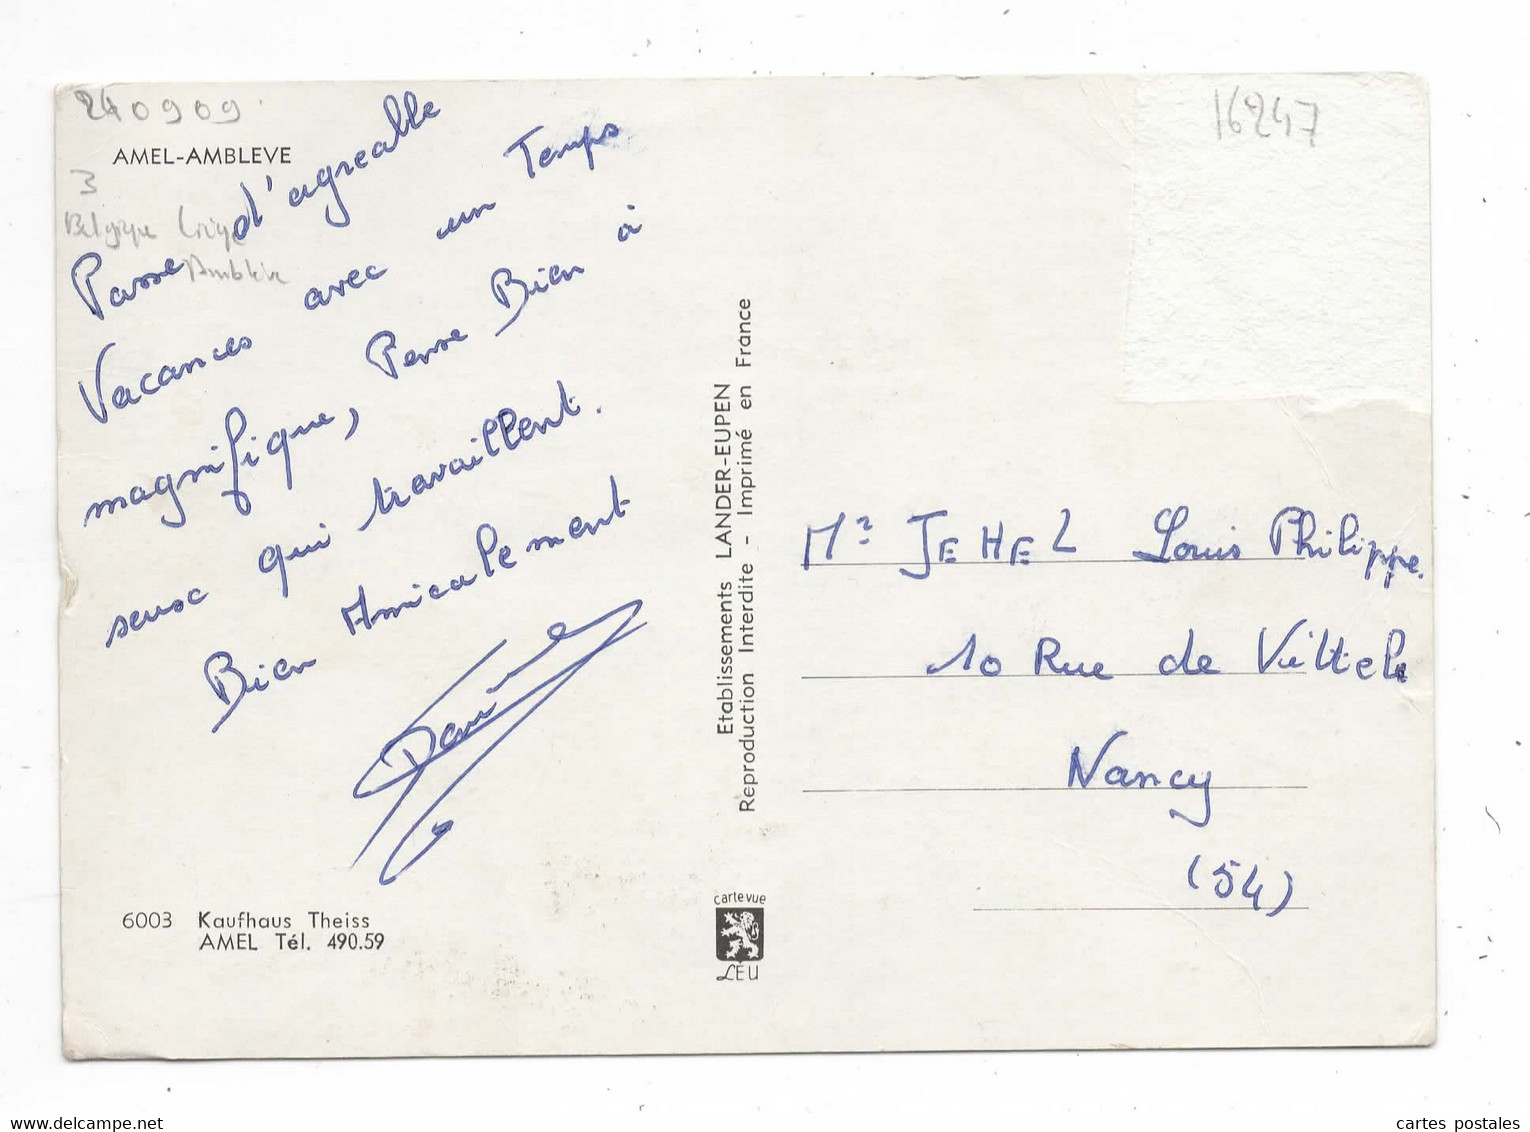 240909
AMEL-AMBLEVE
3
Belgique Liège
Amblève
Passe d'agreable
Vacances avec un Temps
magnifique, Pense Bien à
seux qui travaillent.
Bien Amicalement
6003 Kaufhaus Theiss
AMEL Tél. 490.59
Etablissements LANDER-EUPEN
Reproduction Interdite - Imprimé en France
cartevue
LEU
16247
Mr JEHEL Louis Philippe.
10 Rue de Vittel
Nancy
(54)
www.delcampe.net
cartes postales